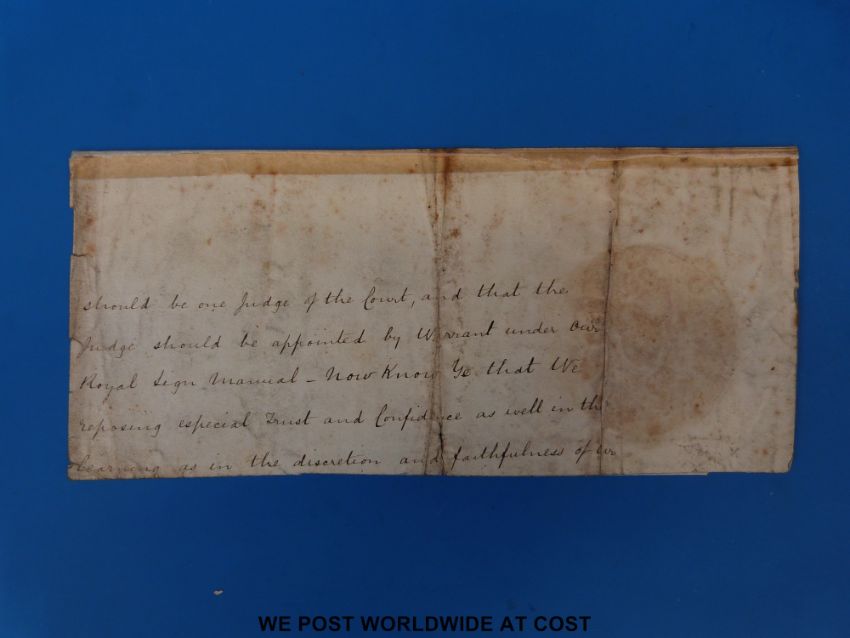 should be one Judge of the Court, and that the
Judge should be appointed by Warrant under Our
Royal Sign Manual - Now Know Ye that We
reposing especial Trust and Confidence as well in the
learning as in the discretion and faithfulness of our
WE POST WORLDWIDE AT COST